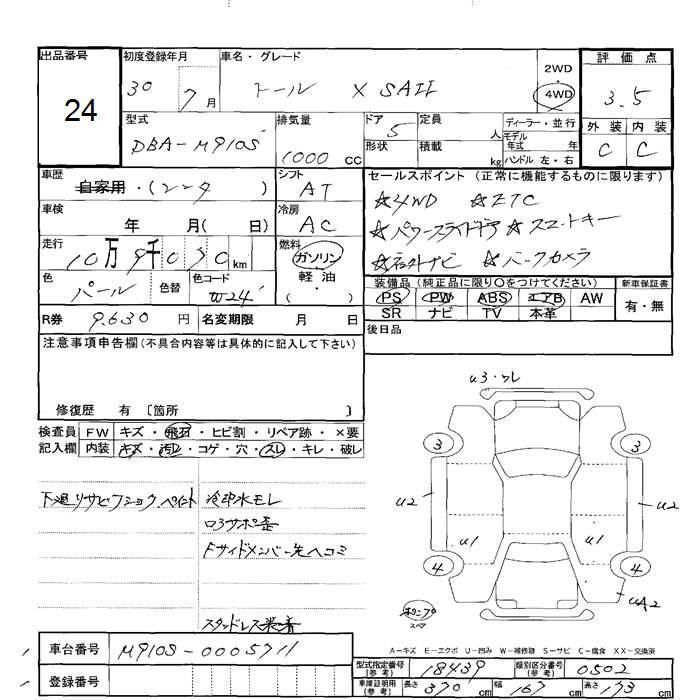 出品番号
24
初度登録年月
30 7 月
車名・グレード
トール X SAII
2WD
4WD
評価点
3.5
外装 内装
C C
型式
DBA-M910S
排気量
1000 cc
ドア
5
形状
定員
人
積載
kg
ディーラー・並行
モデル
年式 年
ハンドル 左・右
車歴
自家用・(レンタ )
シフト
AT
車検
年 月( 日)
冷房
AC
走行
10万9千030km
燃料
ガソリン
・軽油・
( )
色
パール
色替
色コード
W24
R券 9,630 円
名変期限 月 日
セールスポイント (正常に機能するものに限ります)
☆4WD ☆ETC
☆パワースライドドア ☆スマートキー
☆社外ナビ ☆バックカメラ
装備品(純正品に限り○をつけてください)
PS PW ABS エアB AW
SR ナビ TV 本革
新車保証書
有・無
後日品
注意事項申告欄(不具合内容等は具体的に記入して下さい)
修復歴 有 〔箇所 〕
検査員
記入欄
FW キズ・飛石・ヒビ割・リペア跡・×要
内装 キズ・汚レ・コゲ・穴・スレ・キレ・破レ
下廻リサビ
ペイント
冷却水モレ
コアサポ歪
Fサイドメンバー先ヘコミ
スタッドレス装着
U3・ワレ
3 3
U2 U2
U1 U1
4 4
UA2
スペア
A-キズ E-エクボ U-凹み W-補修跡 S-サビ C-腐食 XX-交換済
車台番号 M910S-0005711
登録番号
型式指定番号
(参考)
18439
類別区分番号
(参考)
0502
車庫証明用
(参考)
長さ 370 cm
幅 167 cm
高さ 173 cm